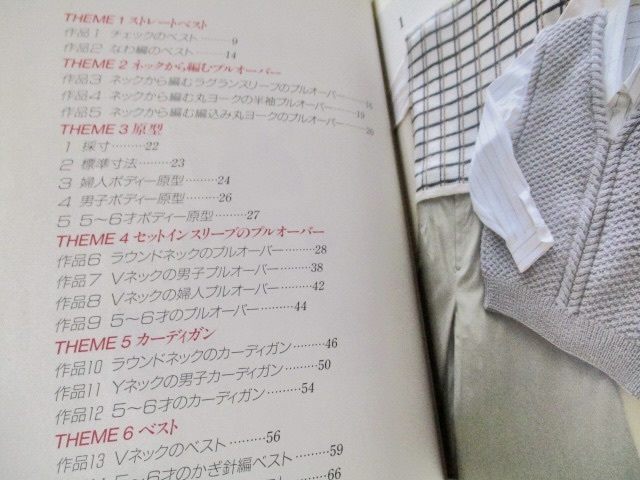 THEME 1 ストレートベスト
作品1 チェックのベスト………9
作品2 なわ編のベスト………14
THEME 2 ネックから編むプルオーバー
作品3 ネックから編むラグランスリーブのプルオーバー……16
作品4 ネックから編む丸ヨークの半袖プルオーバー……19
作品5 ネックから編む編込み丸ヨークのプルオーバー……20
THEME 3 原型
1 採寸………22
2 標準寸法………23
3 婦人ボディー原型………24
4 男子ボディー原型………26
5 5〜6才ボディー原型………27
THEME 4 セットインスリーブのプルオーバー
作品6 ラウンドネックのプルオーバー………28
作品7 Vネックの男子プルオーバー………38
作品8 Vネックの婦人プルオーバー………42
作品9 5〜6才のプルオーバー………44
THEME 5 カーディガン
作品10 ラウンドネックのカーディガン………46
作品11 Yネックの男子カーディガン………50
作品12 5〜6才のカーディガン………54
THEME 6 ベスト
作品13 Vネックのベスト………56
5〜6才のかぎ針編ベスト………59
………66
1